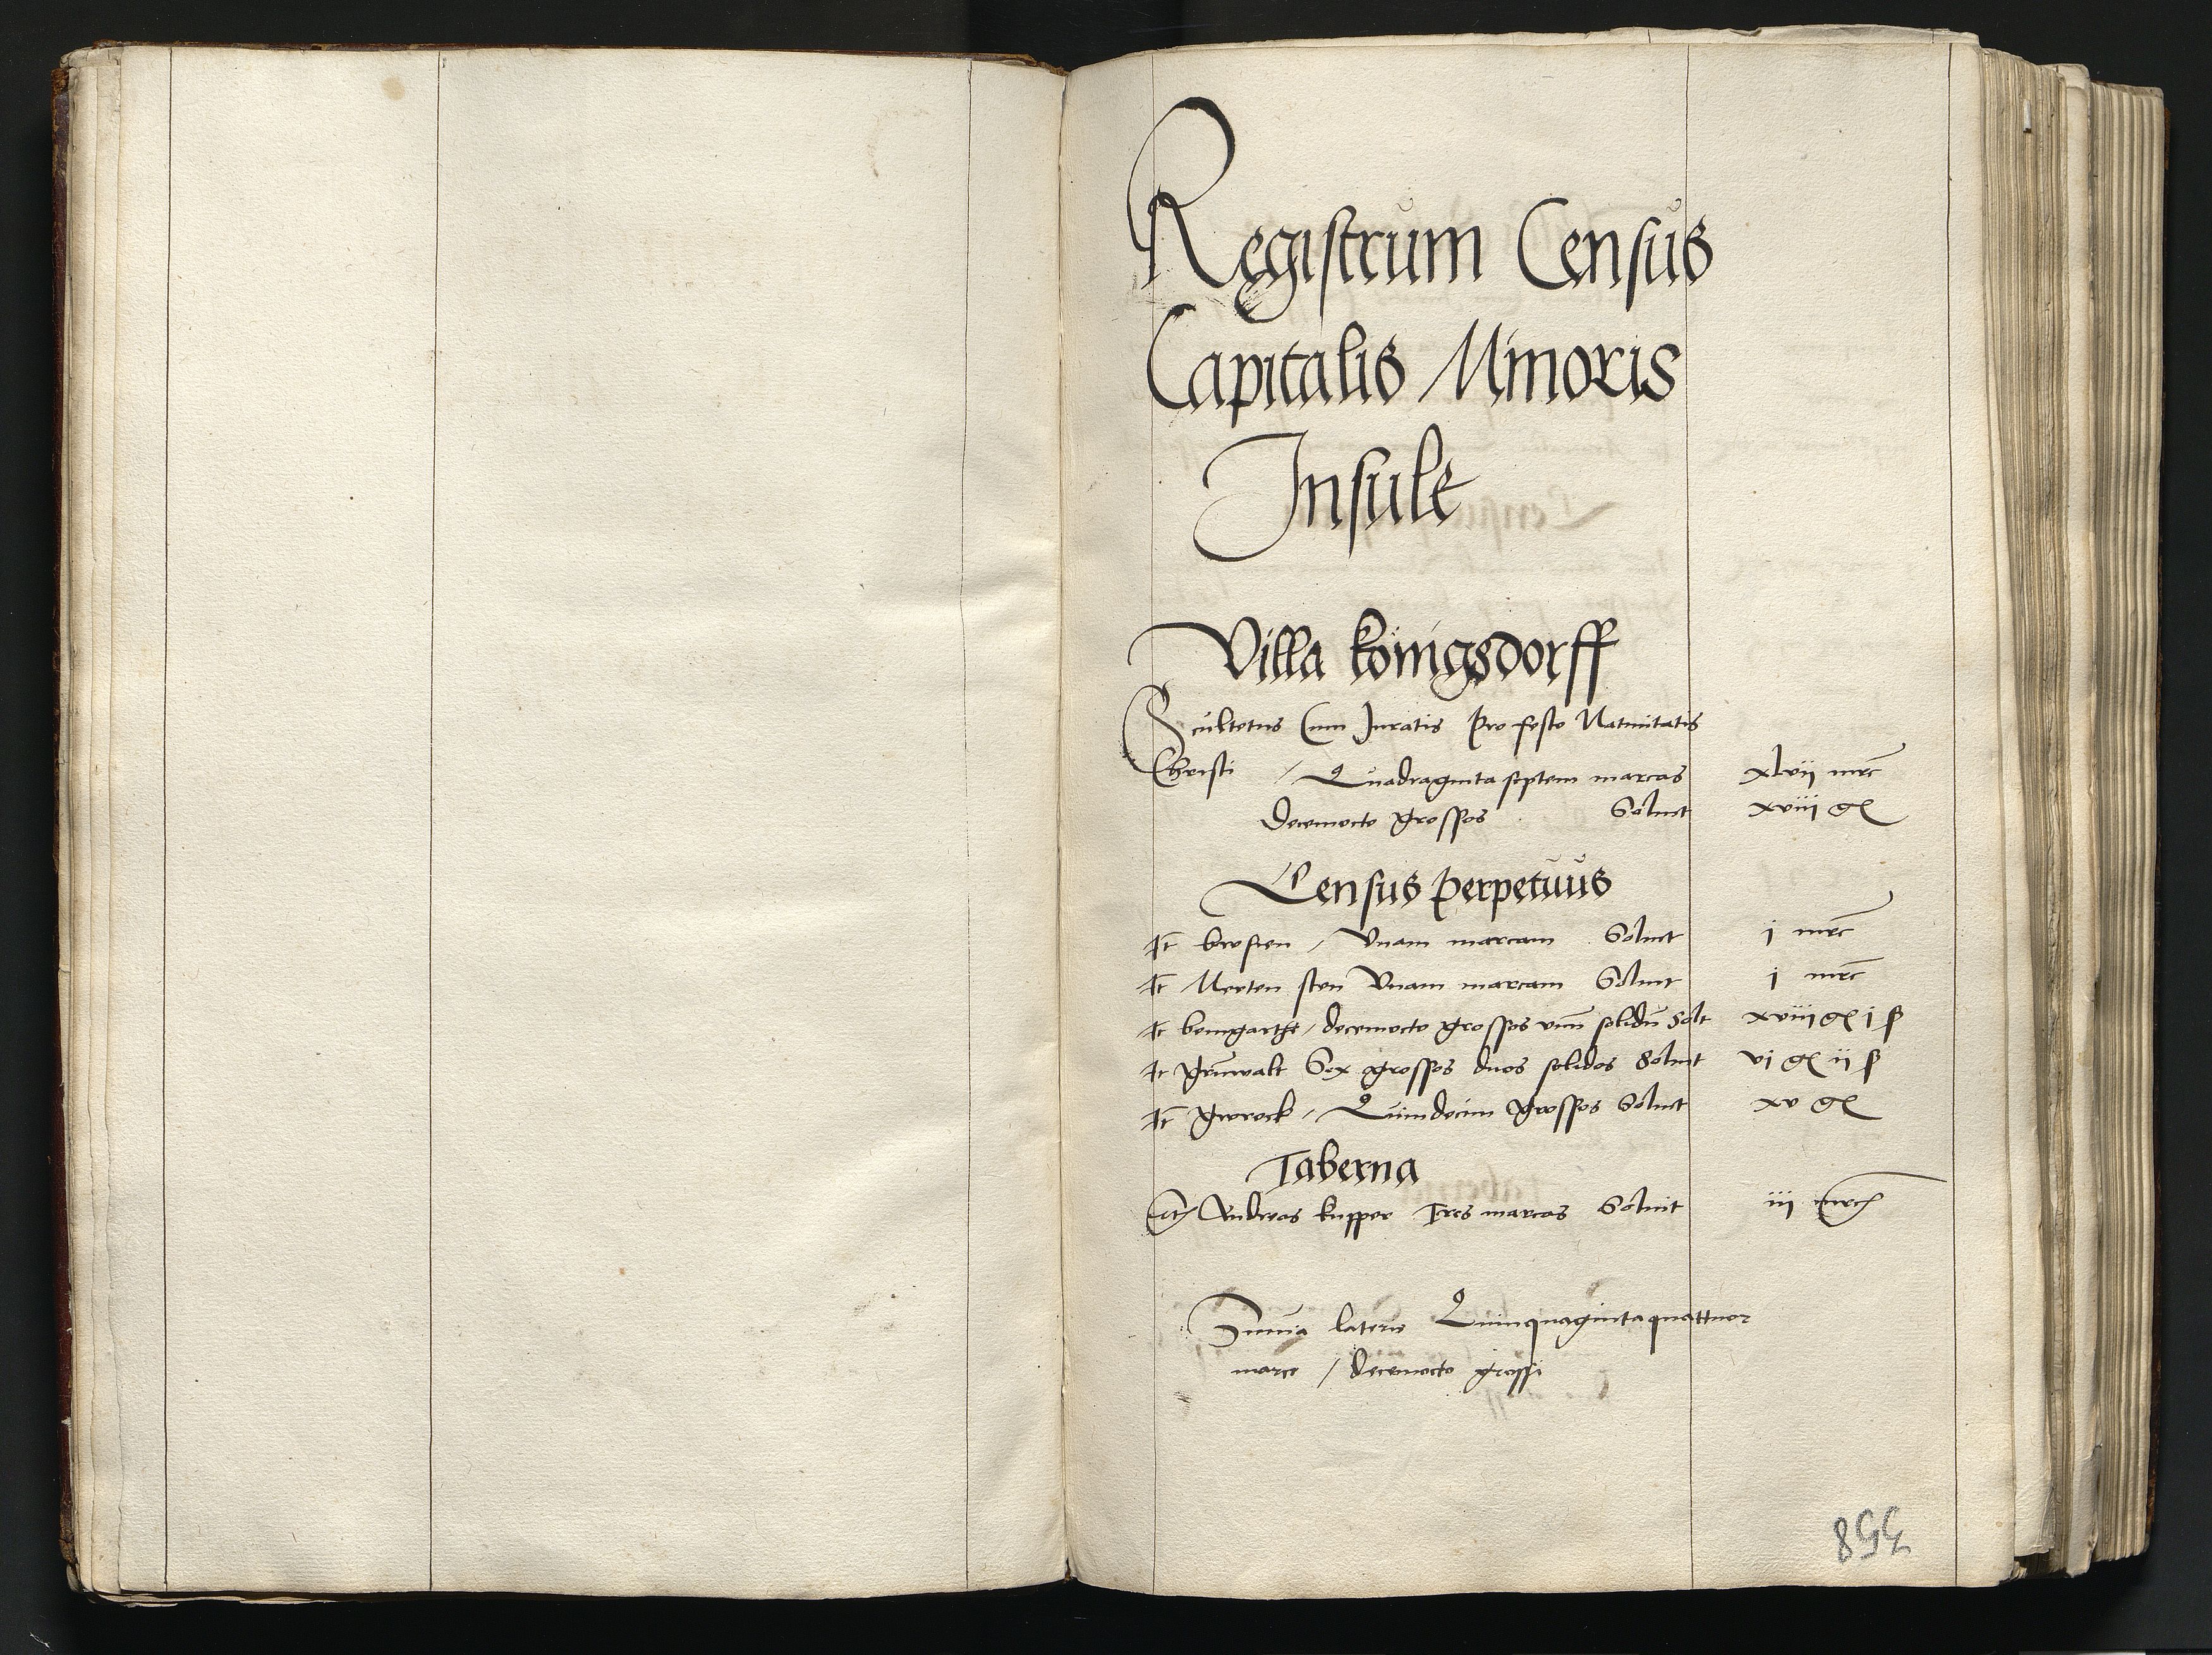 Registrum Census
Capitalis Minoris
Insule
Villa königsdorff
Scultetus Cum Juratis Pro festo Natiuitatis
Christi / Quadraginta septem marcas xlvii mrc
Decemocto grossos Soluit xviii g
Census perpetuus
It kirsten / Vnam marcam Soluit i mrc
It Merten sten Vnam marcam Soluit i mrc
It bomgarthe / decemocto grossos vnū solidū Solt xviii g i ß
It grunwalt Sex grossos duos solidos Soluit vi g ii ß
It / Quindecim grossos Soluit xv g
Taberna
It Andreas kupper Tres marcas Soluit iii mrc
Summa lateris Quinquagintaquattuor
marce / decemocto grossi
358